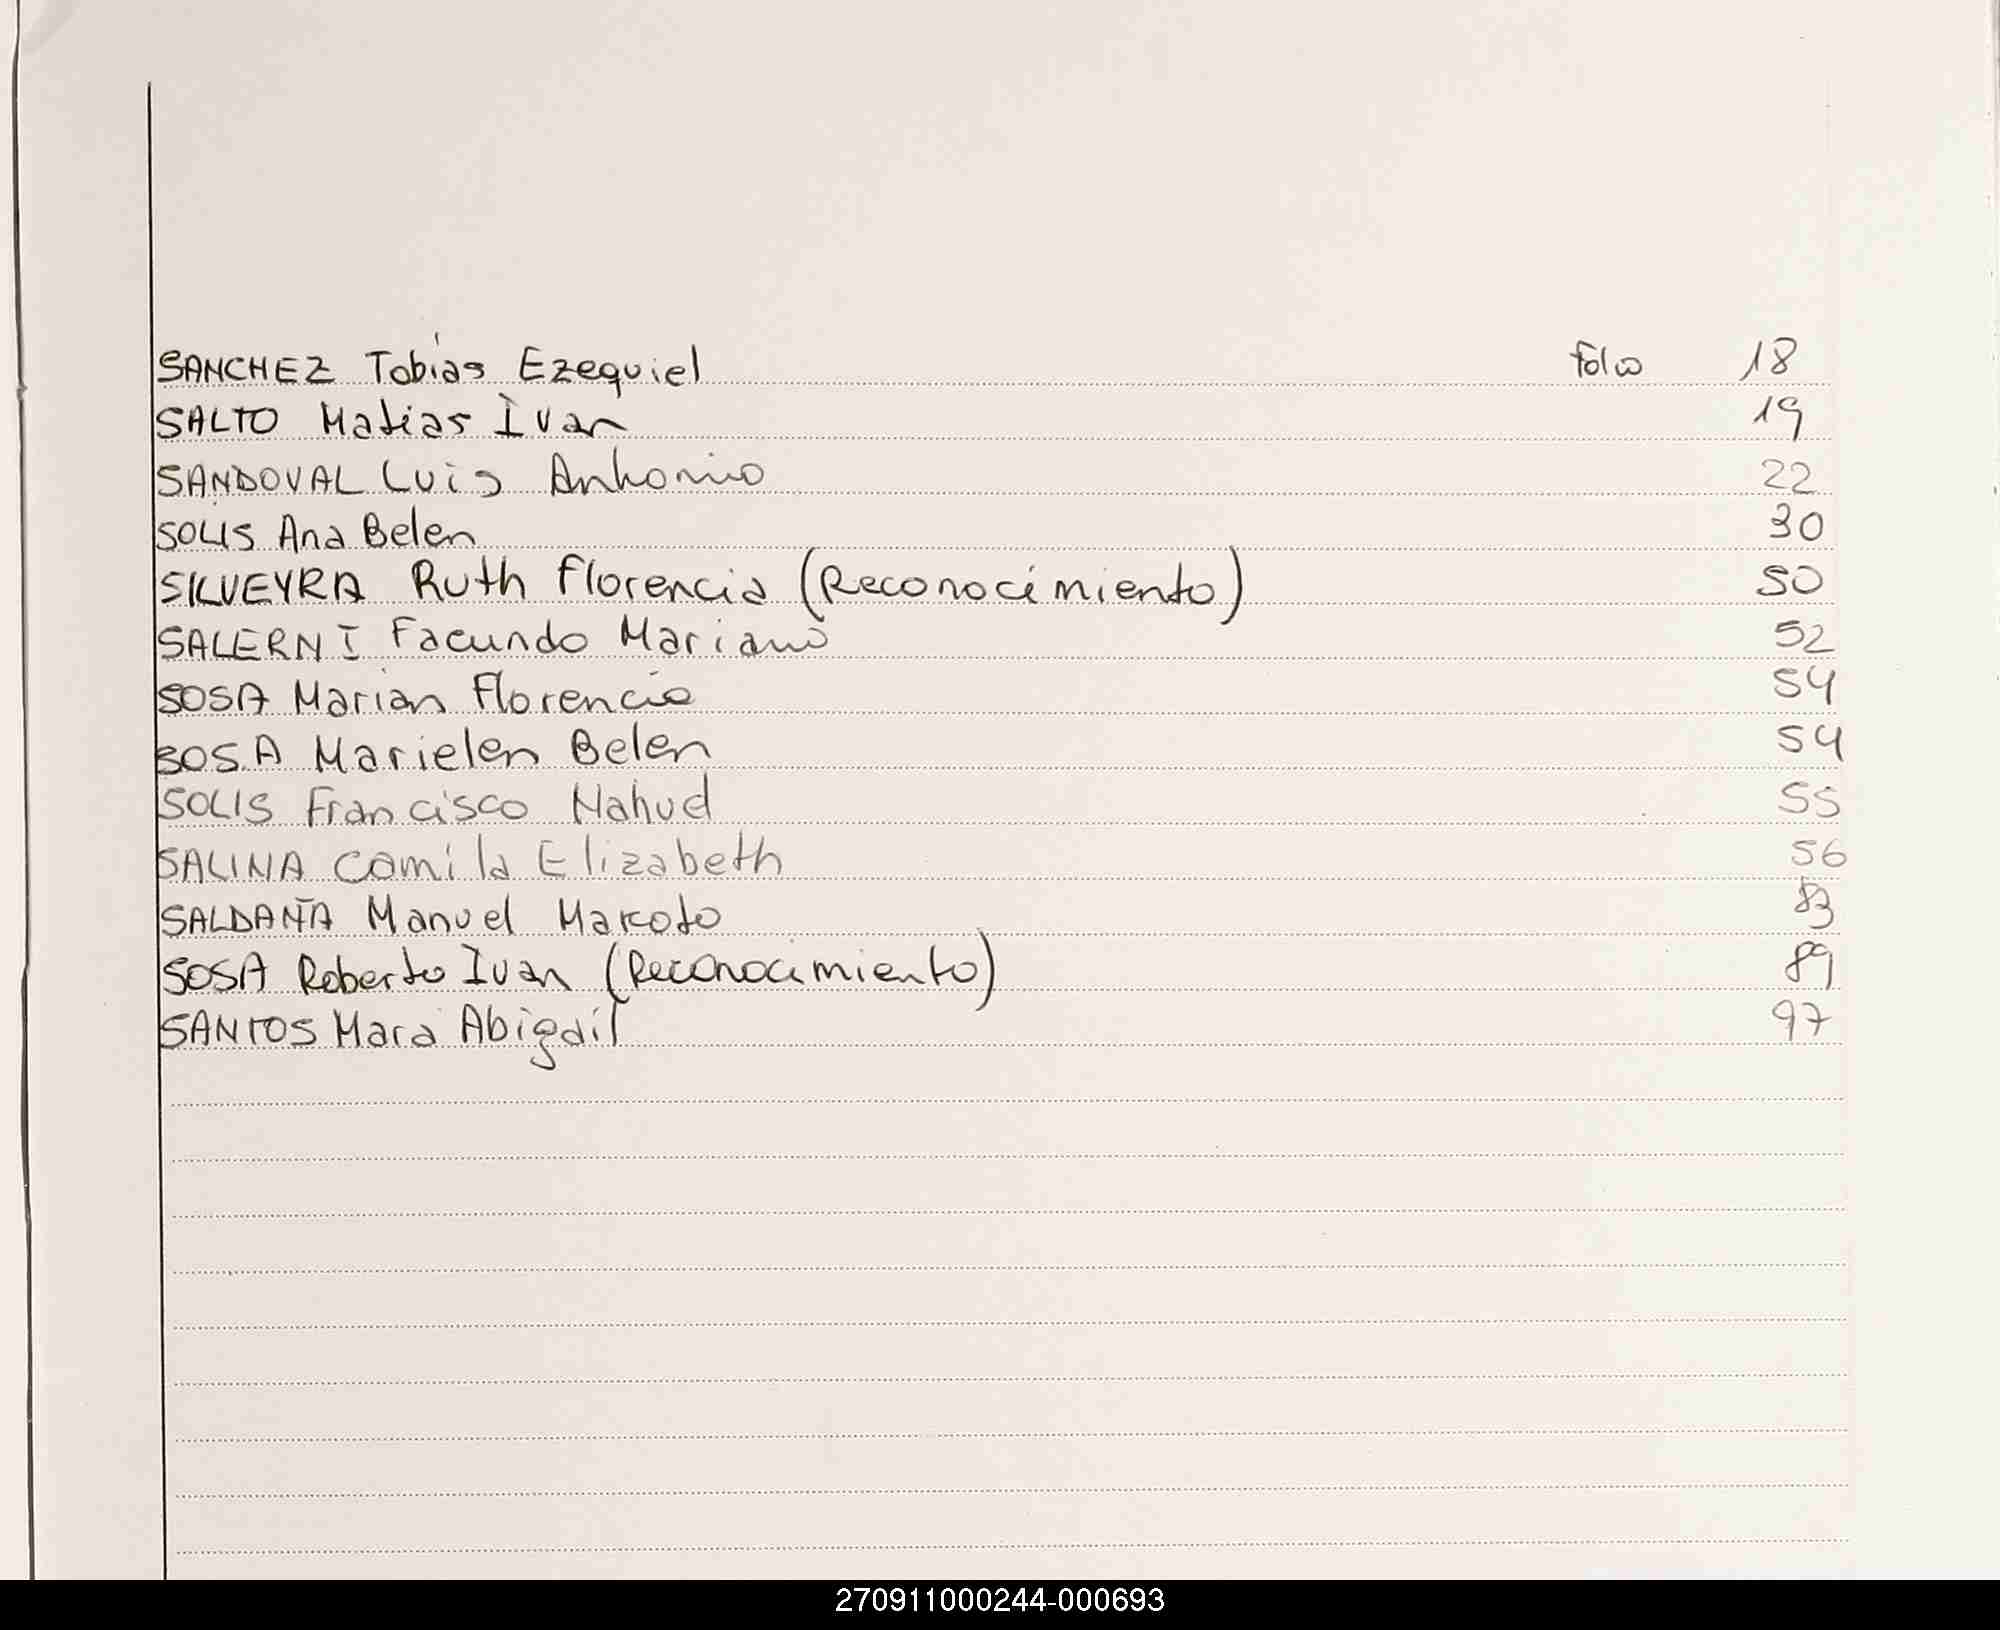 SANCHEZ Tobias Ezequiel folio 18
SALTO Matias Ivan 19
SANDOVAL Luis Antonio 22
SOLIS Ana Belen 30
SILVEYRA Ruth Florencia (Reconocimiento) 50
SALERNI Facundo Mariano 52
SOSA Marian Florencia 54
SOSA Marielen Belen 54
SOLIS Francisco Nahuel 55
SALINA Camila Elizabeth 56
SALDAÑA Manuel 83
SOSA Roberto Ivan (Reconocimiento) 89
SANTOS Mara Abigail 97
270911000244-000693